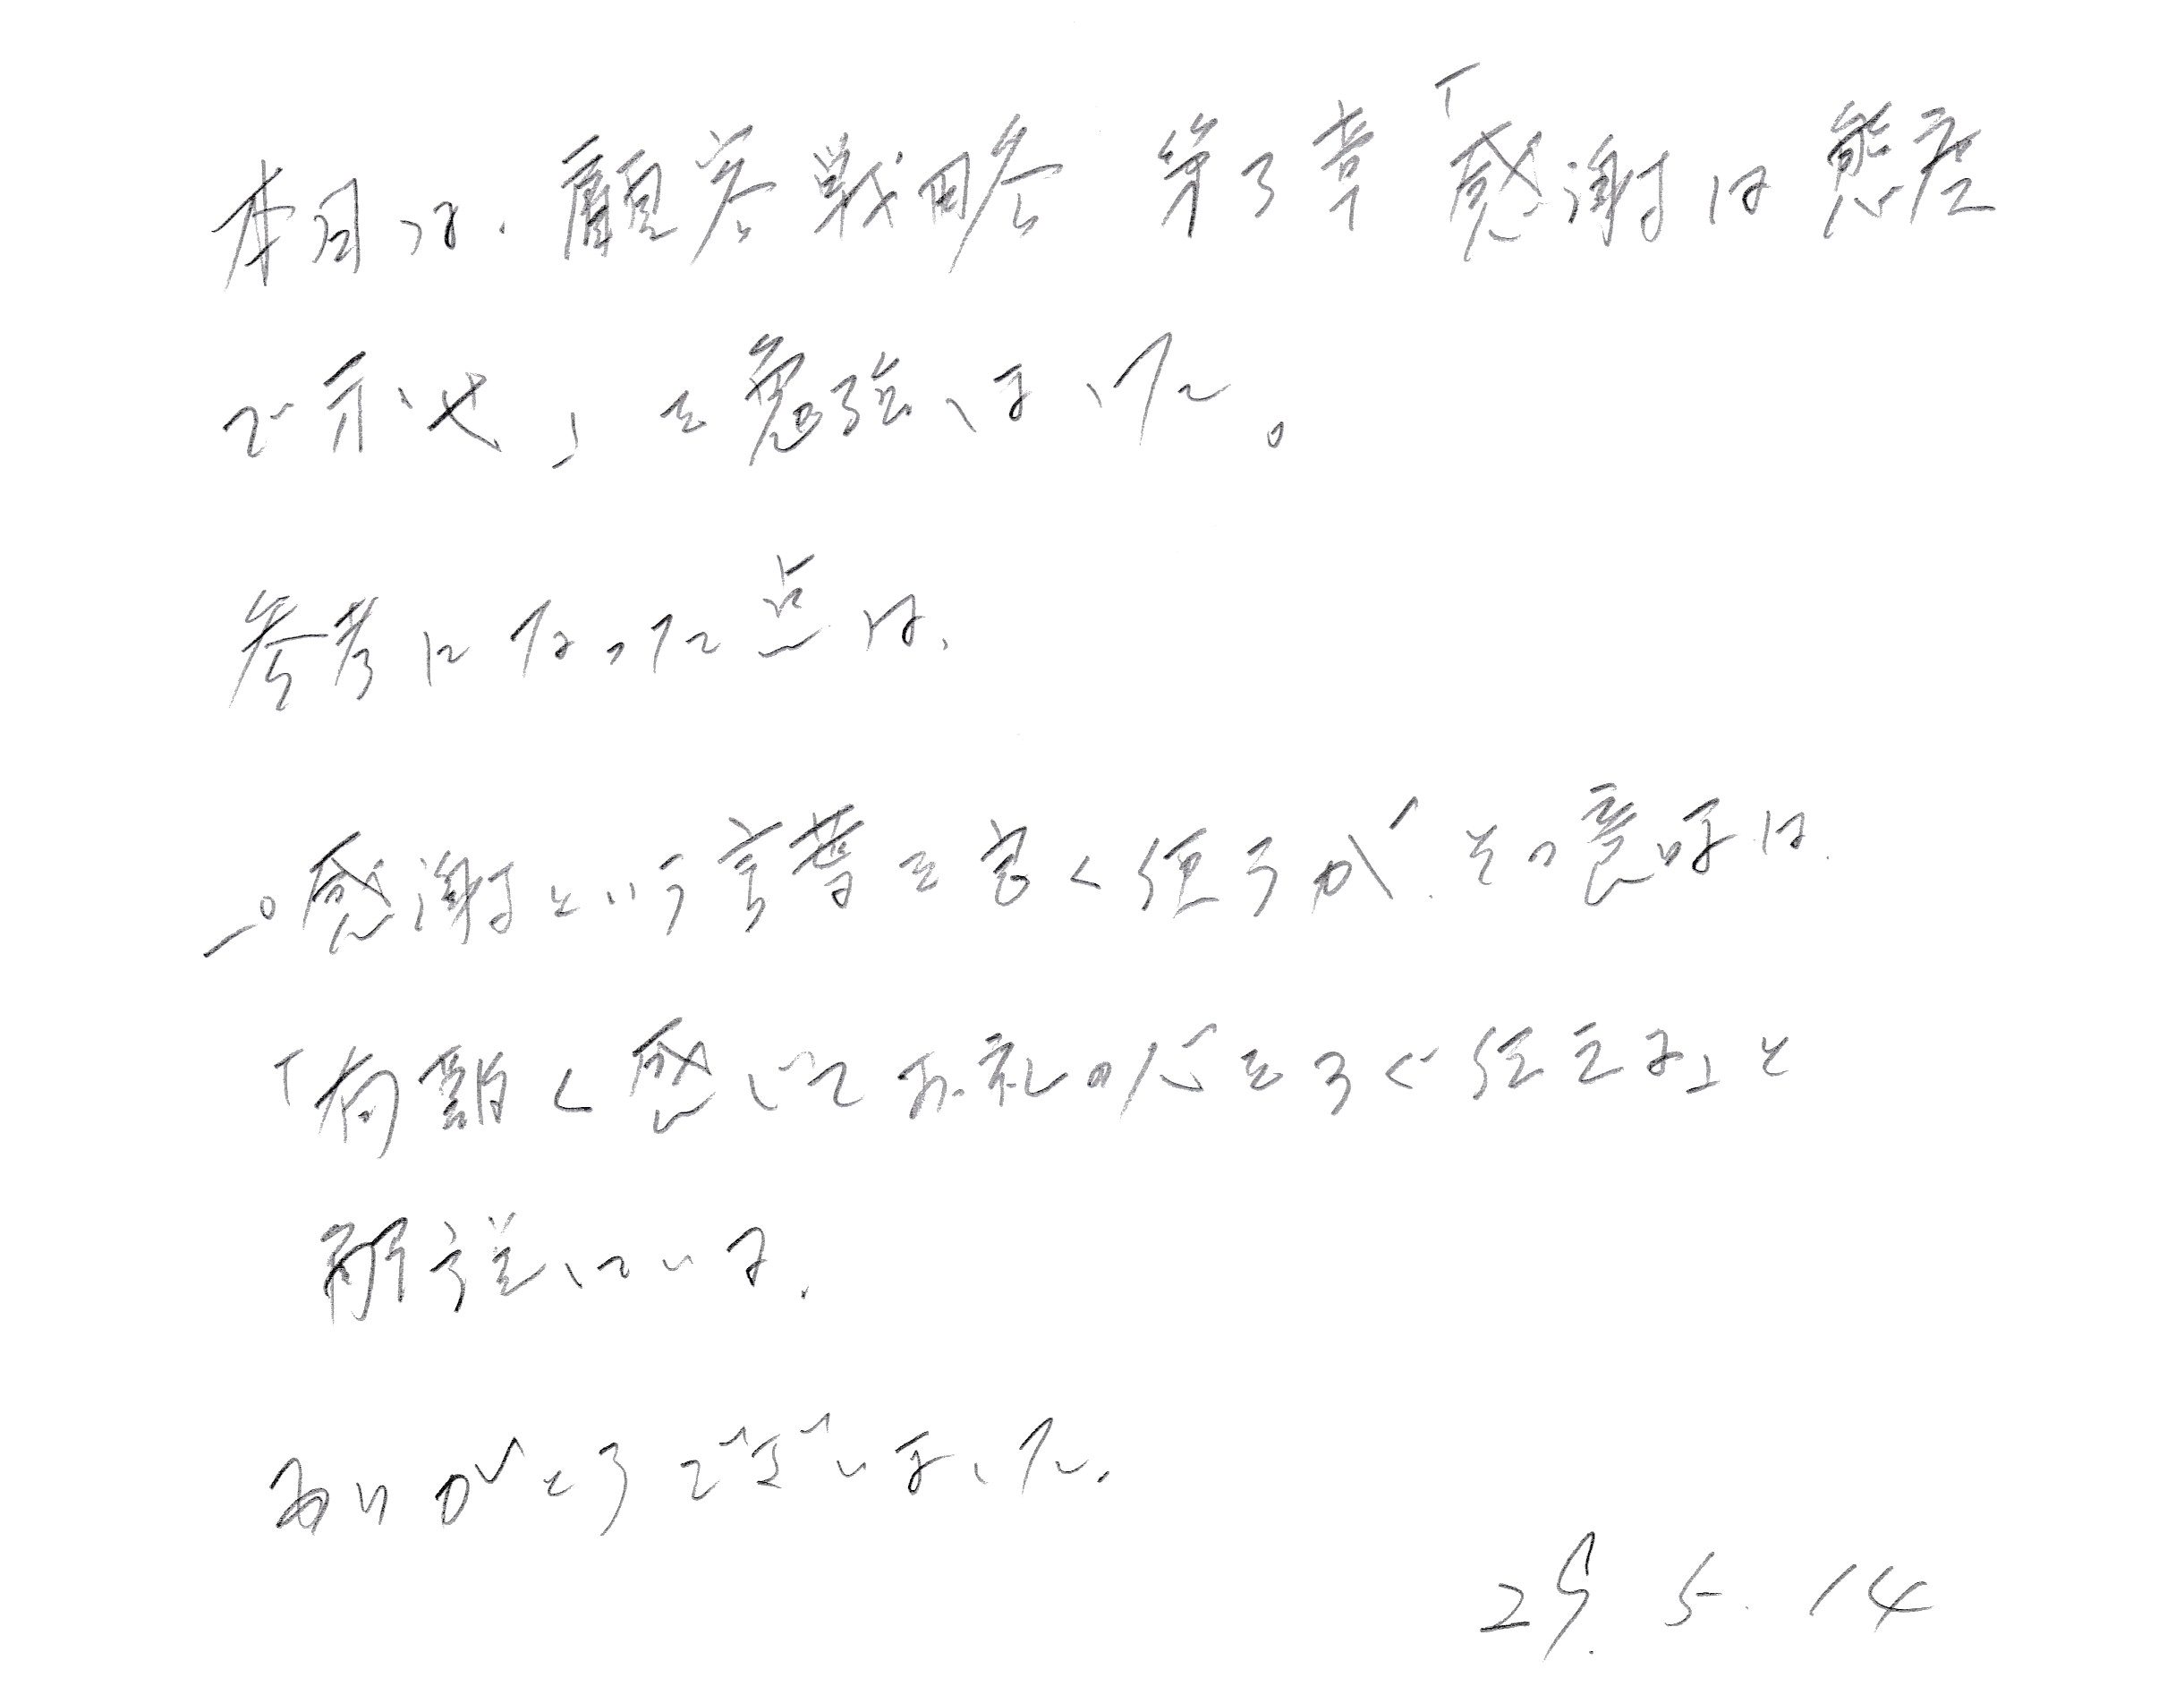 本日は、顧客戦略 第3章「感謝は態度
で示せ」を勉強しました。
参考になった点は、
○感謝という言葉を良く使うが、その意味は、
「有難く感じてお礼の心をすぐ伝える」と
解説している。
ありがとうございました。
25. 5. 14